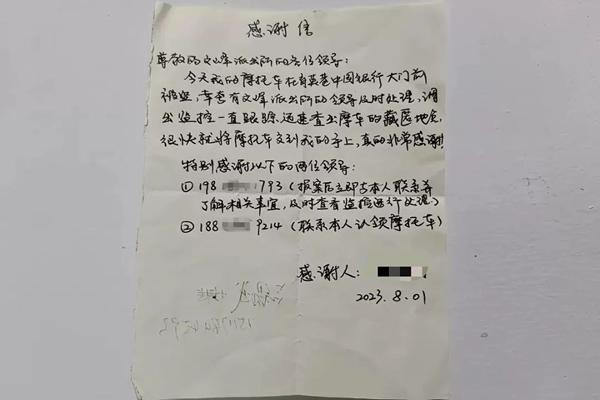 感谢信
尊敬的文峰派出所的各位领导:
今天我的摩托车在育英巷中国银行大门前
被盗,幸遇有文峰派出所的领导及时处理,调
出监控一直跟踪,迅速查出摩车的藏匿地点,
很快就将摩托车交到我的手上,真的非常感谢!
特别感谢以下的两位领导:
①198 1793(报案后立即与本人联系并
了解相关事宜,及时查看监控进行处理)
②188 9214(联系本人认领摩托车)
感谢人:
2023.8.01